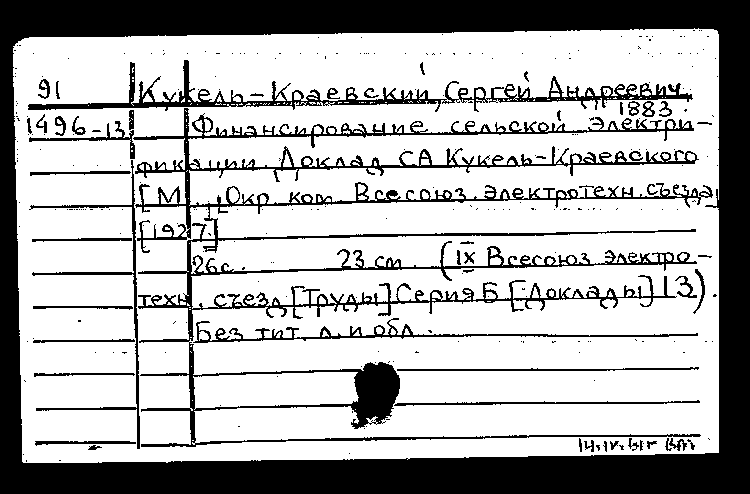 91 Кукель-Краевский, Сергей Андреевич,
1883.
1496-13 Финансирование сельской электри-
фикации. Доклад СА Кукель-Краевского
[М., Окр. ком. Всесоюз. электротехн. съезда,
[1927]]
26с. 23 см. (IX Всесоюз электро-
техн. съезд [Труды] Серия Б [Доклады] 13).
Без тит. л. и обл.